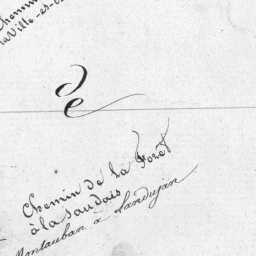 la Ville-es-
de
Chemin de la Forêt
à la Saudais
Montauban à Landujan